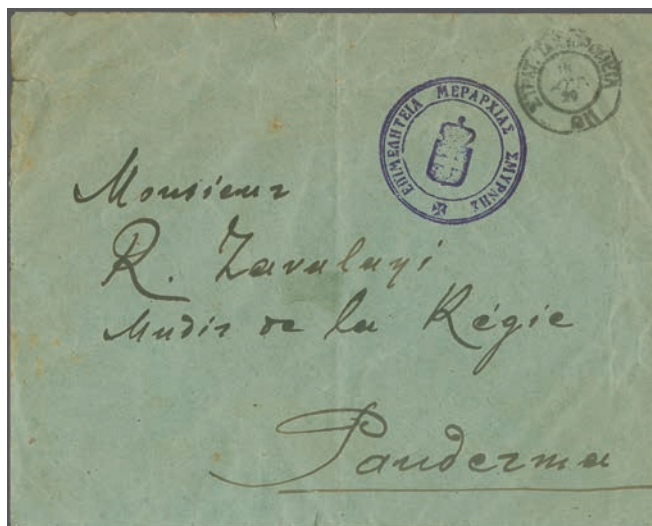 ΕΠΙΜΕΛΗΤΕΙΑ ΜΕΡΑΡΧΙΑΣ ΣΜΥΡΝΗΣ
20
Monsieur
R.
Mudir de la Régie
Panderma